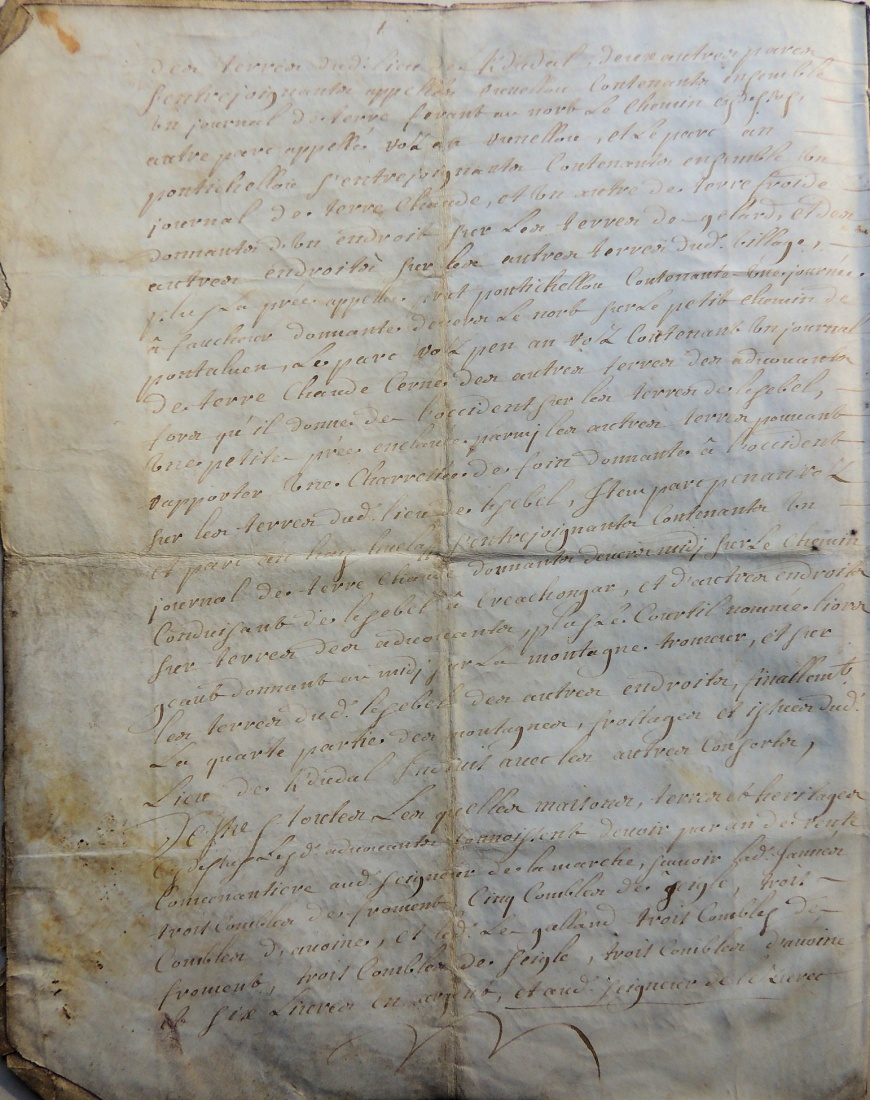 des terres dud. lieu de K/dudal, deux autres parcs
s'entrejoignants appellés vunellou contenants ensemble
un journal de terre ferant au nort le chemin cydessus,
autre parc appellés volz an vunellou, et le parc an
pontichellou s'entrejoignants contenants ensemble un
journal de terre chaude, et un autre de terre froide
donnants d'un endroit sur les terres de gelard, et des
autres endroits sur les autres terres dud. village,
plus la prée appellée prat pontichellou contenante une journée
à faucheur donnante devers le nort sur le petit chemin de
pontaluen, le parc volz pen an volz contenant un journal
de terre chaude cerné des autres terres des advouants
fors qu'il donne de l'occident sur les terres de lesebel,
une petite prée enclavée parmj les autres terres pouvant
rapporter une charrettée de foin donnante à l'occident
sur les terres dud. lieu de lesebel, Item parc pen an volz
et parc an s'entrejoignants contenants un
journal de terre chaude donnants devers midj sur le chemin
conduisant de lesebel à creachongar, et d'autres endroits
sur terres des advouants, plus le courtil nommé liors
geaut donnant au midj sur la montagne tromeur, et sur
les terres dud. lesebel des autres endroits, finallemt.
la quarte partie des montagnes, frostages et issues dud.
Lieu de K/dudal Indivis avec les autres consorts,
Desire s toutes Lesquelles maisons, terres et heritages
cydessus lesd. advouants connoissent devoir par an de rente
convenantiere aud. seigneur de la marche, sçavoir lad. Jannes
trois combles de froment, cinq combles de seigle, trois
combles d'avoine, et led. Le galland trois combles de
froment, trois combles de seigle, trois combles d'avoine
et six livres en argent, et aud. seigneur de